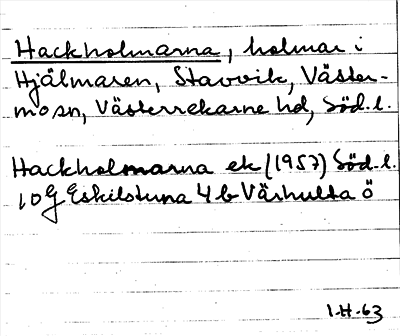 Hackholmarna, holmar i
Hjälmaren, Stavvik, Väster-
mo sn, Västerrekarne hd, Söd. l.
Hackholmarna ek (1957) Söd. l.
10G Eskilstuna 4 b Värhulta ö
1-H-63